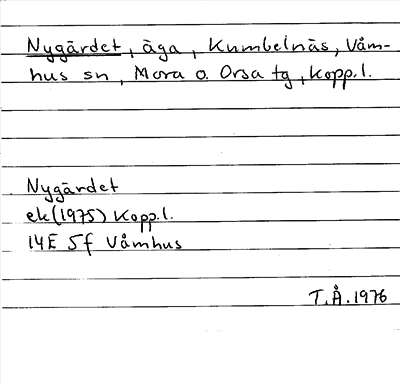 Nygärdet, äga, Kumbelnäs, Våm-
hus sn, Mora o. Orsa tg, Kopp.l.
Nygärdet
ek(1975) Kopp.l.
14E 5f Våmhus
T.Å.1976